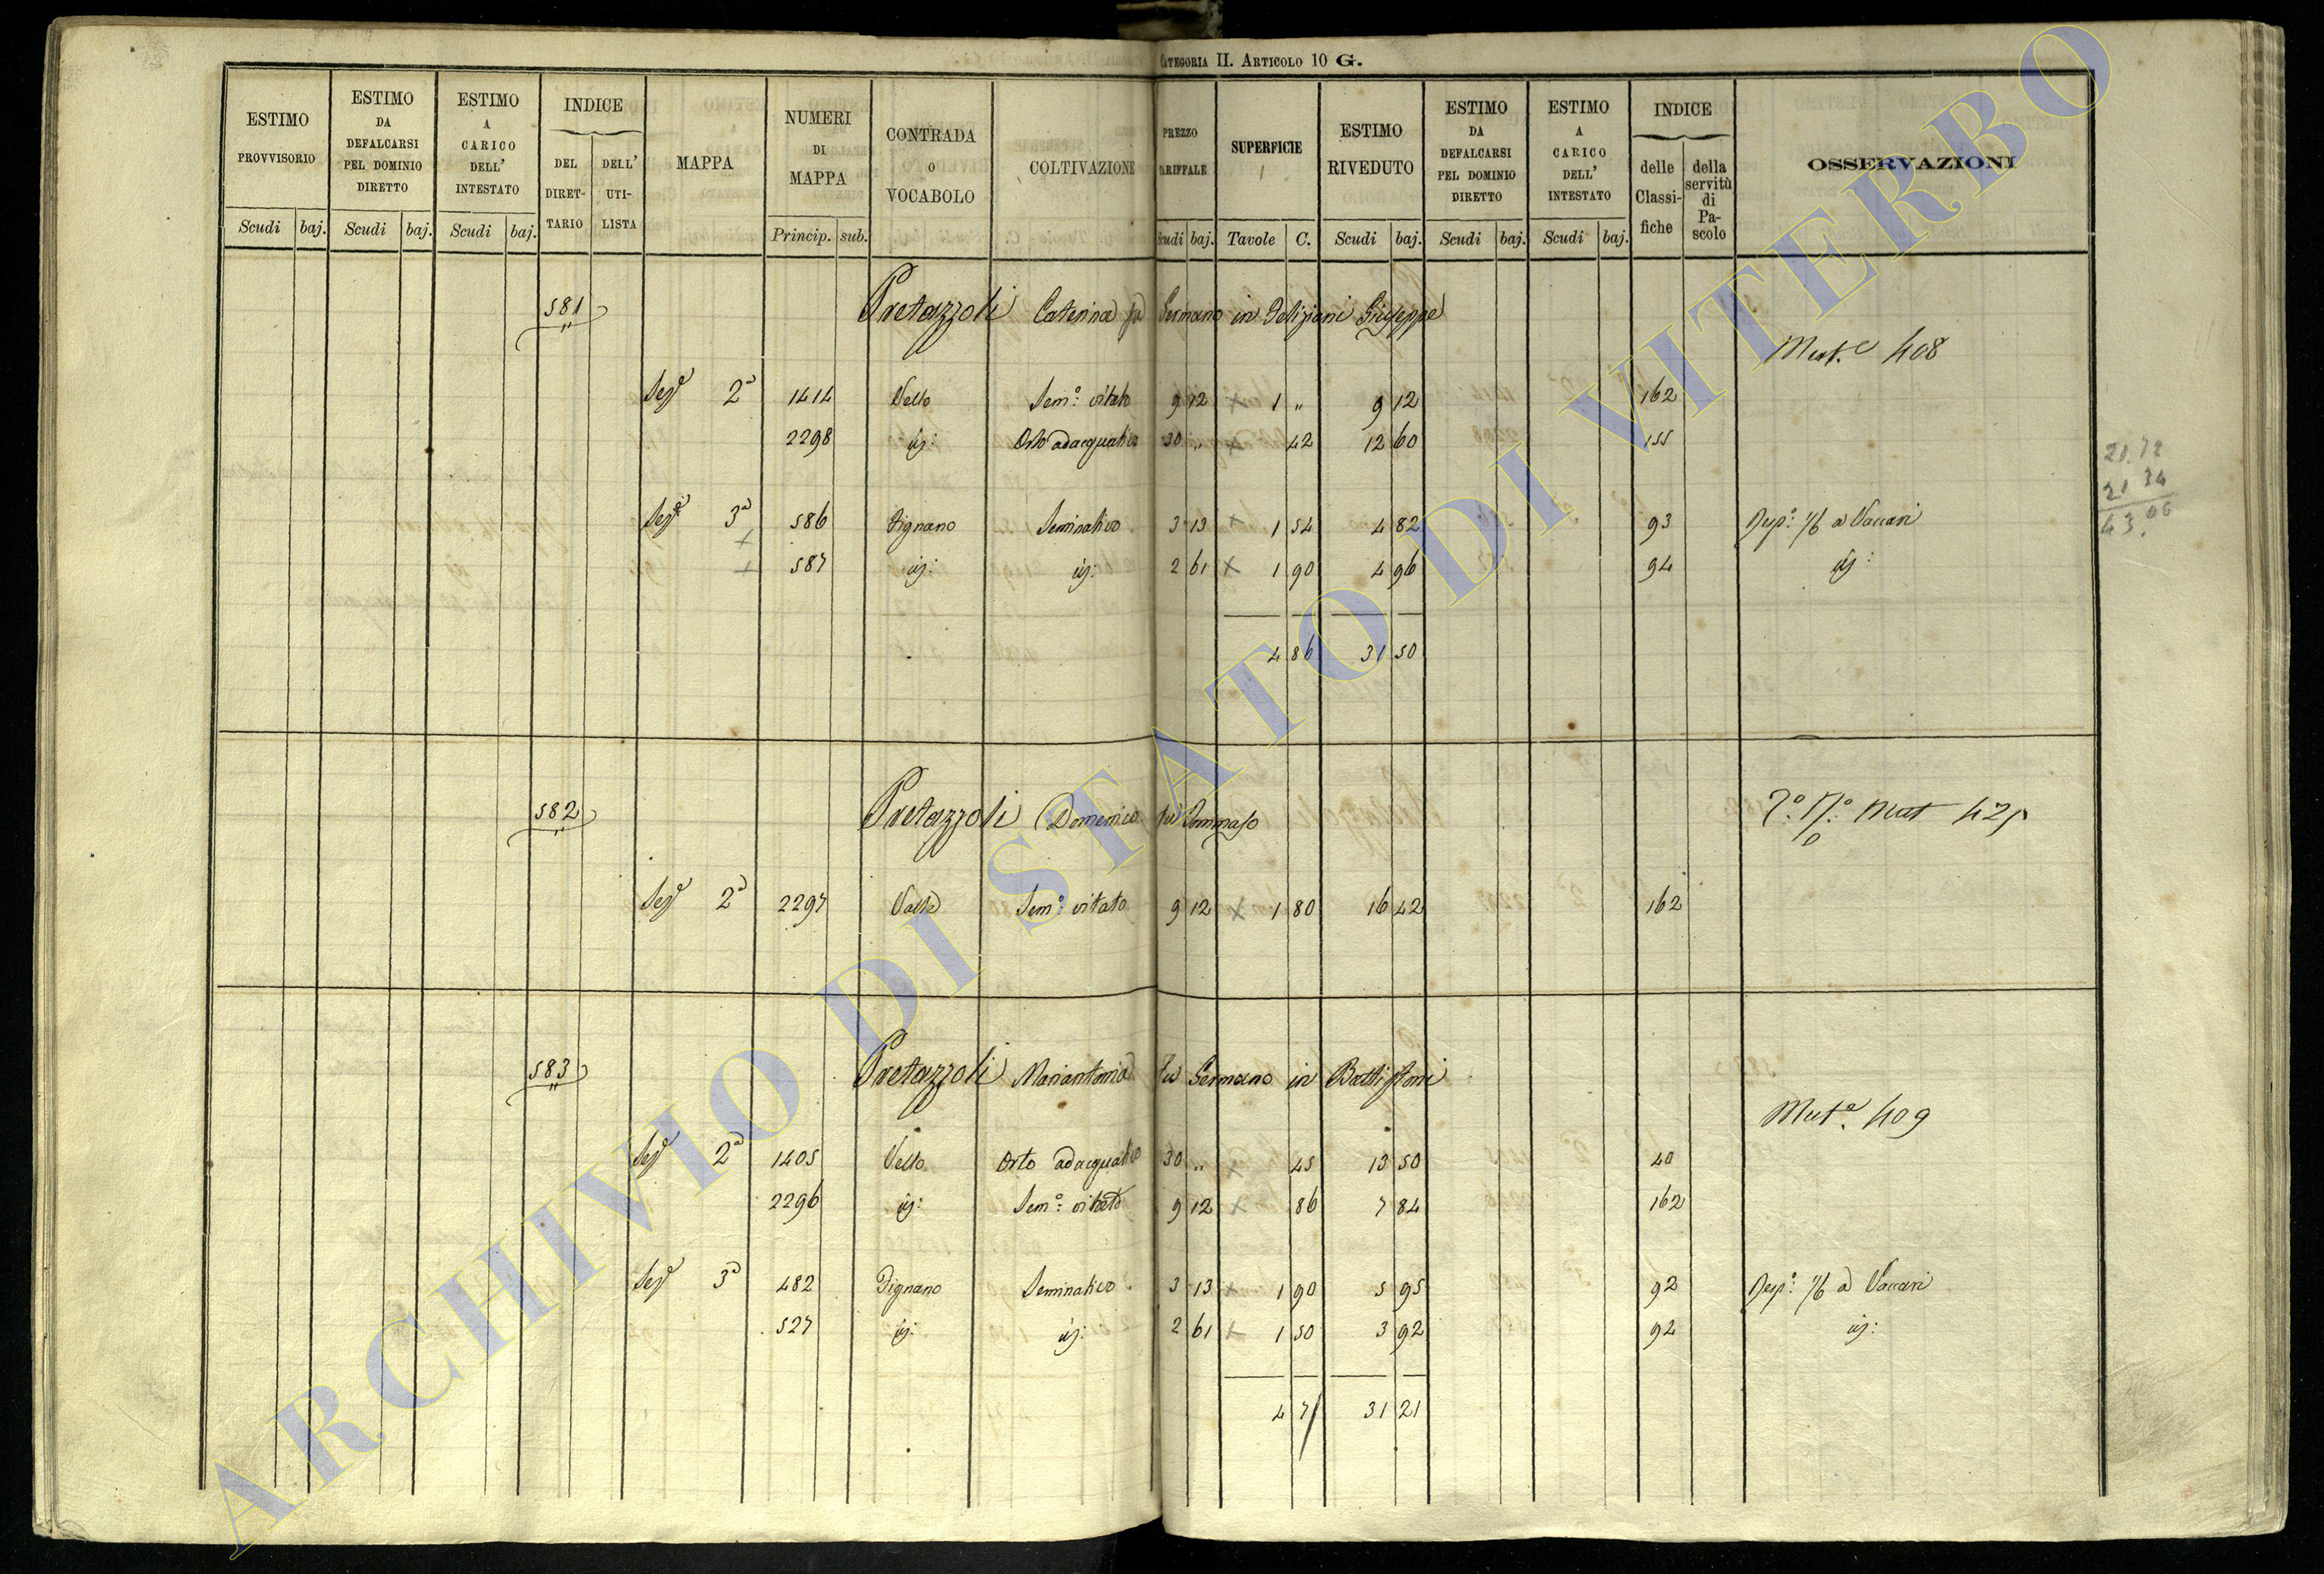 CATEGORIA II. ARTICOLO 10 G.
ESTIMO PROVVISORIO Scudi baj.
ESTIMO DA DEFALCARSI PEL DOMINIO DIRETTO Scudi baj.
ESTIMO A CARICO DELL' INTESTATO Scudi baj.
INDICE DEL DIRET-TARIO DELL' UTI-LISTA
MAPPA
NUMERI DI MAPPA Princip. sub.
CONTRADA O VOCABOLO
COLTIVAZIONE
PREZZO TARIFFALE Scudi baj.
SUPERFICIE Tavole C.
ESTIMO RIVEDUTO Scudi baj.
ESTIMO DA DEFALCARSI PEL DOMINIO DIRETTO Scudi baj.
ESTIMO A CARICO DELL' INTESTATO Scudi baj.
INDICE delle Classi-fiche della servitù di Pa-scolo
OSSERVAZIONI
581 Pretazzoli Caterina fu Germano in Feliziani Giuseppe
Mut.e 408
Sez.e 2a 1414 Valle Sem.o vitato 9 12 1 " 9 12 162
2298 id: Orto adacquativo 30 " 42 12 60 155
Sez.e 3a 586 Fignano Seminativo 3 13 1 54 4 82 93 Resp.o 1/6 a Vaccari
587 id: id: 2 61 1 90 4 96 94 id:
4 86 31 50
21.72
21 34
43.06
582 Pretazzoli Domenico fu Tommaso
Mut 425
Sez.e 2a 2297 Valle Sem.o vitato 9 12 1 80 16 42 162
583 Pretazzoli Mariantonia fu Germano in Battistoni
Mut.e 409
Sez.e 2a 1405 Valle Orto adacquativo 30 " 45 13 50 40
2296 id: Sem.o vitato 9 12 86 7 84 162
Sez.e 3a 482 Fignano Seminativo 3 13 1 90 5 95 92 Resp.o 1/6 a Vaccari
527 id: id: 2 61 1 50 3 92 92 id:
4 71 31 21
ARCHIVIO DI STATO DI VITERBO